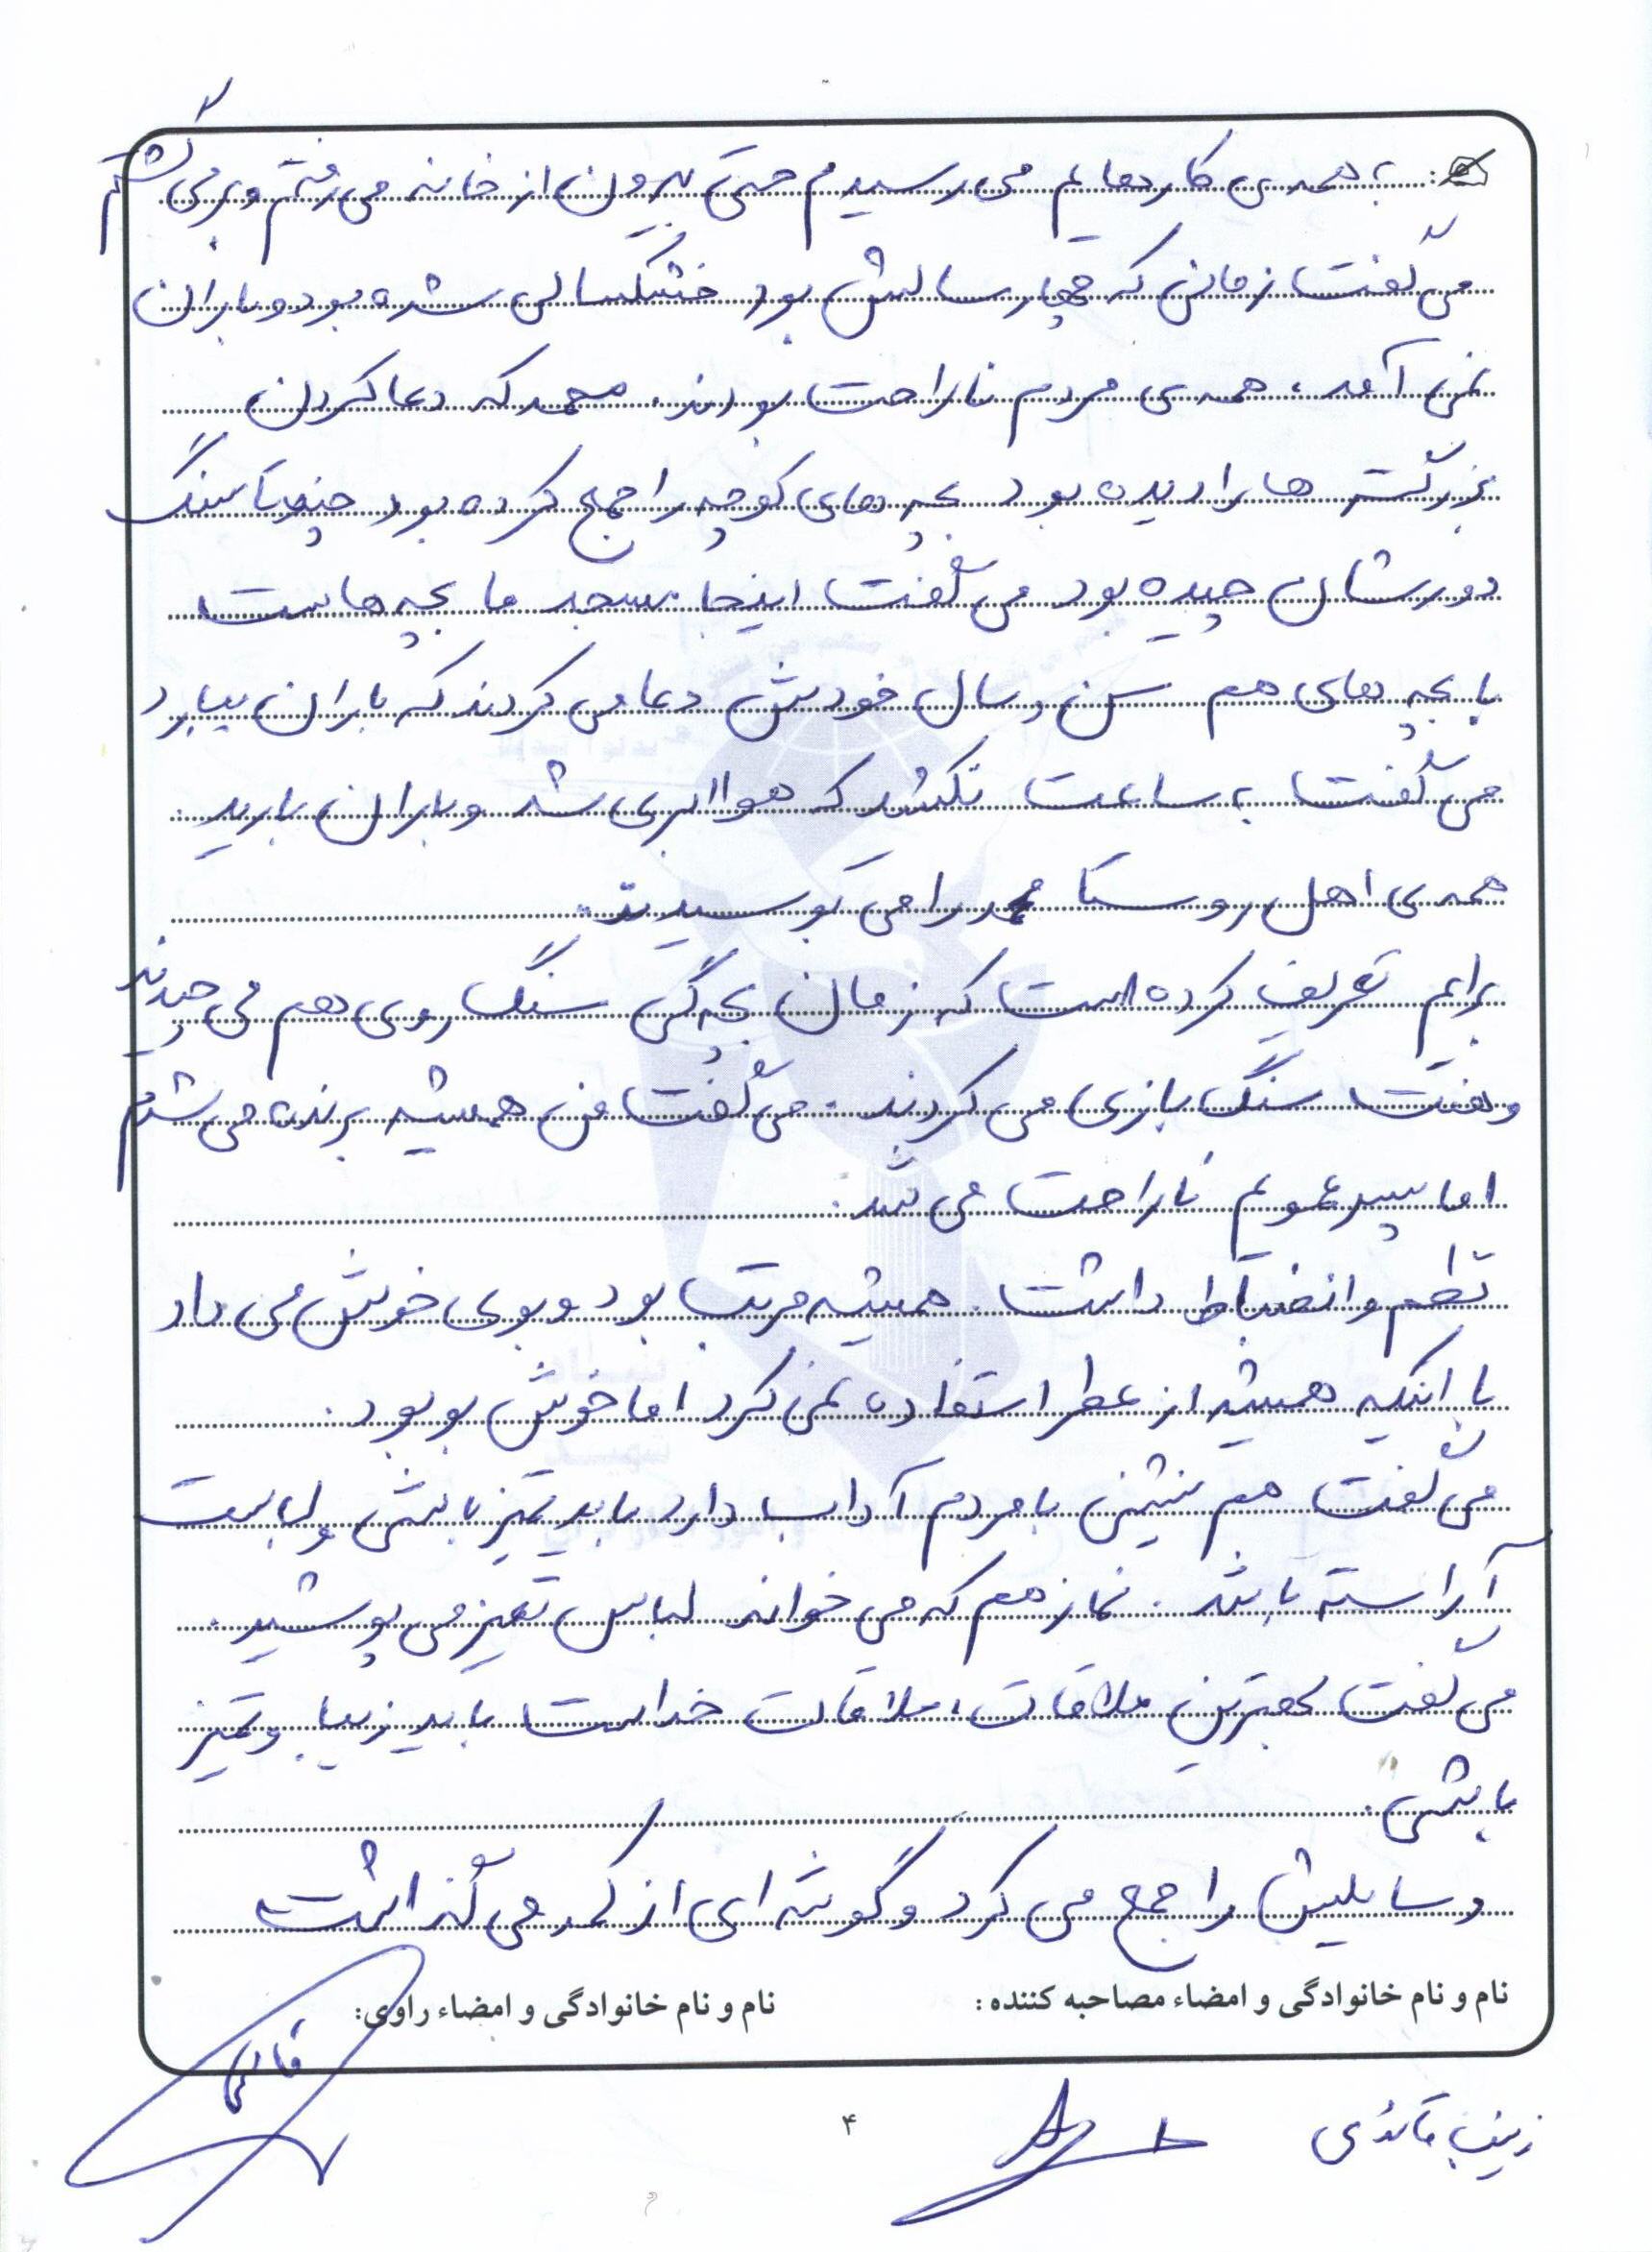 به همه‌ی کارهایم می رسیدم حتی بیرون از خانه می رفتم و برمی گشتم
می گفت زمانی که چهار سالش بود خشکسالی شده بود و باران
نمی آمد، همه‌ی مردم ناراحت بودند. محمد که دعا کردن
بزرگتر ها را دیده بود بچه های کوچه را جمع کرده بود چند تا سنگ
دورشان چیده بود می گفت اینجا مسجد ما بچه هاست
با بچه های هم سن و سال خودش دعا می کردند که باران ببارد
می گفت به ساعت نکشید که هوا ابری شد و باران بارید.
همه‌ی اهل روستا محمد را می بوسیدند.
برایم تعریف کرده است که زمان بچه گی سنگ روی هم می چیدند
و هفت سنگ بازی می کردند. می گفت من همیشه برنده می شدم
اما پسر عمویم ناراحت می شد.
نظم و انضباط داشت. همیشه مرتب بود و بوی خوش می داد
با اینکه همیشه از عطر استفاده نمی کرد اما خوش بو بود.
می گفت هم نشینی با مردم آداب دارد باید تمیز باشی و لباست
آراسته باشد. نماز هم که می خواند لباس تمیز می پوشید.
می گفت بهترین ملاقات، ملاقات خداست باید زیبا و تمیز
باشی.
وسایلش را جمع می کرد و گوشه ای از کمد می گذاشت
نام و نام خانوادگی و امضاء مصاحبه کننده: نام و نام خانوادگی و امضاء راوی:
زینب قائدی
۴